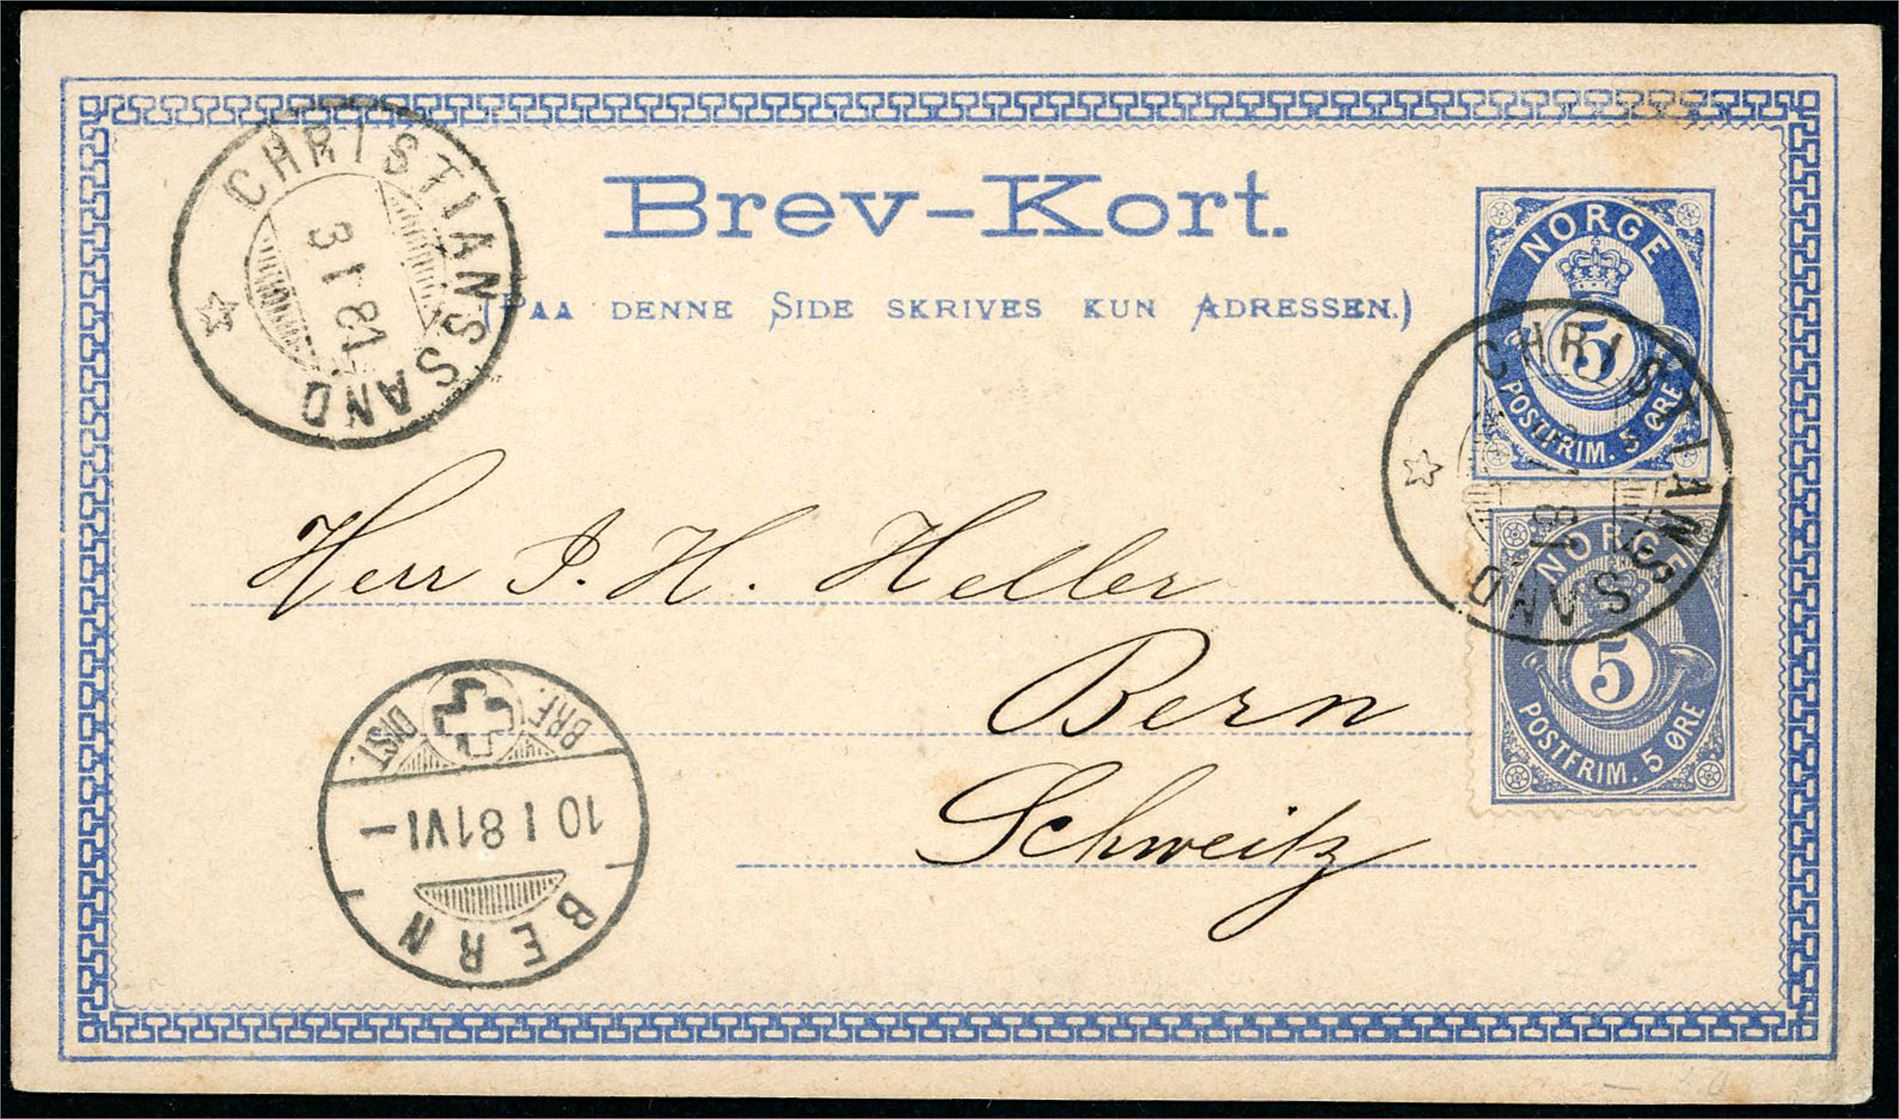 Brev-Kort.
(PAA DENNE SIDE SKRIVES KUN ADRESSEN.)
NORGE
5
POSTFRIM. 5 ØRE
NORGE
5
POSTFRIM. 5 ØRE
CHRISTIANSSAND
3 I 81
CHRISTIANSSAND
3 I 81
Herr J. H. Heller
Bern
Schweitz
BRF. DIST.
10 I 81 VI-
BERN